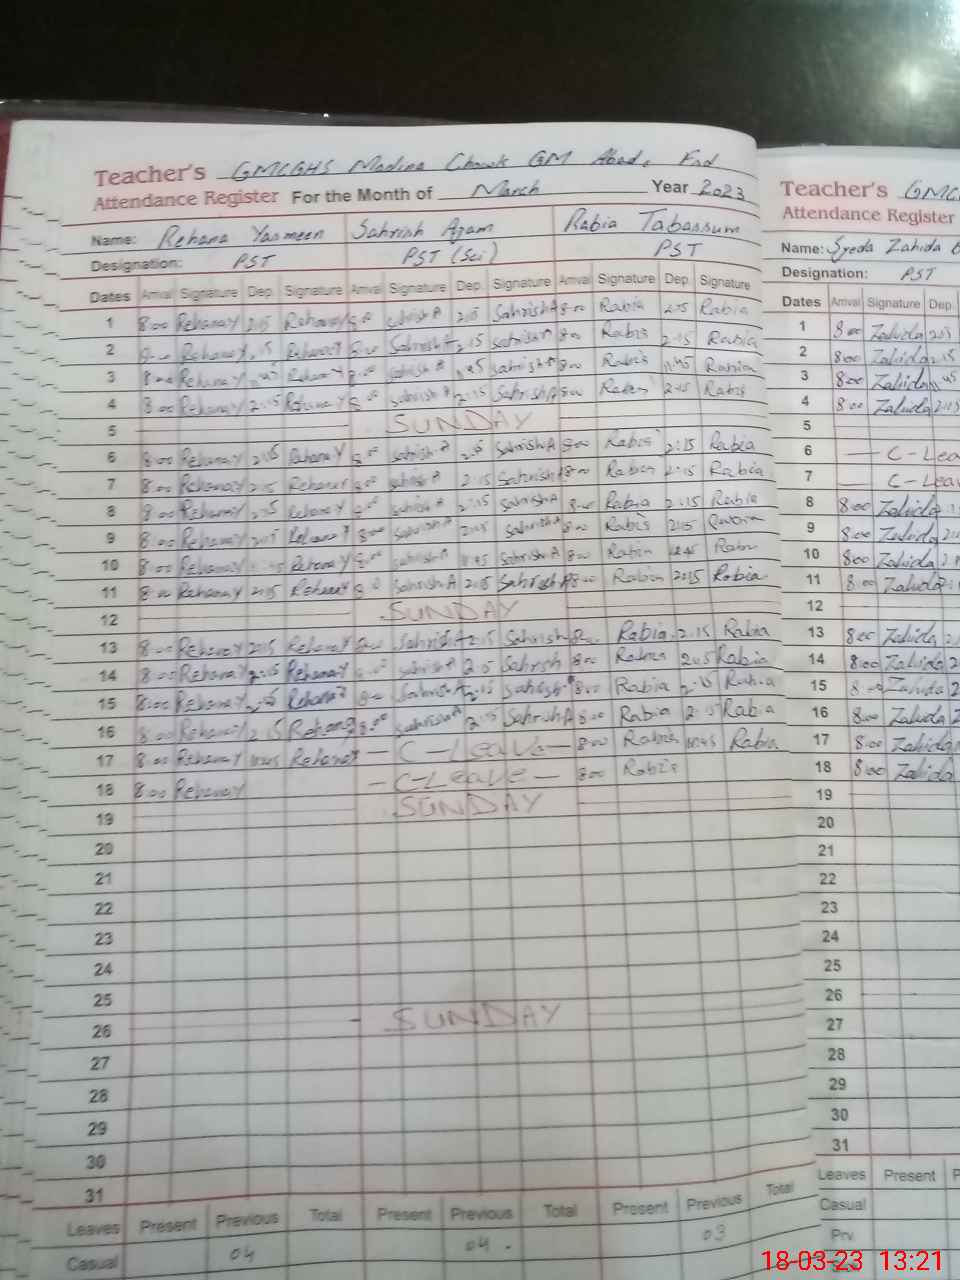 Teacher's GMCGHS Madina Chowk GM Abad, Fsd
Attendance Register For the Month of March Year 2023
Name: Rehana Yasmeen Sahrish Azam Rabia Tabassum
Designation: PST PST (Sci) PST
Dates Arrival Signature Dep. Signature Arrival Signature Dep. Signature Arrival Signature Dep. Signature
1 8:00 RehanaY 2:15 RehanaY 8:00 SahrishA 2:15 SahrishA 8:00 Rabia 2:15 Rabia
2 8:00 RehanaY 2:15 RehanaY 8:00 SahrishA 2:15 SahrishA 8:00 Rabia 2:15 Rabia
3 8:00 RehanaY 11:45 RehanaY 8:00 SahrishA 11:45 SahrishA 8:00 Rabia 11:45 Rabia
4 8:00 RehanaY 2:15 RehanaY 8:00 SahrishA 2:15 SahrishA 8:00 Rabia 2:15 Rabia
5 SUNDAY
6 8:00 RehanaY 2:15 RehanaY 8:00 SahrishA 2:15 SahrishA 8:00 Rabia 2:15 Rabia
7 8:00 RehanaY 2:15 RehanaY 8:00 SahrishA 2:15 SahrishA 8:00 Rabia 2:15 Rabia
8 8:00 RehanaY 2:15 RehanaY 8:00 SahrishA 2:15 SahrishA 8:00 Rabia 2:15 Rabia
9 8:00 RehanaY 2:15 RehanaY 8:00 SahrishA 2:15 SahrishA 8:00 Rabia 2:15 Rabia
10 8:00 RehanaY RehanaY 8:00 SahrishA 11:45 SahrishA 8:00 Rabia Rabia
11 8:00 RehanaY 2:15 RehanaY 8:00 SahrishA 2:15 SahrishA 8:00 Rabia 2:15 Rabia
12 SUNDAY
13 8:00 RehanaY 2:15 RehanaY 8:00 SahrishA 2:15 Sahrish 8:00 Rabia 2:15 Rabia
14 8:00 RehanaY 2:15 RehanaY 8:00 SahrishA 2:15 Sahrish 8:00 Rabia 2:15 Rabia
15 8:00 RehanaY 2:15 RehanaY 8:00 SahrishA 2:15 SahrishA 8:00 Rabia 2:15 Rabia
16 8:00 RehanaY 2:15 RehanaY 8:00 SahrishA 2:15 SahrishA 8:00 Rabia 2:15 Rabia
17 8:00 RehanaY 11:45 RehanaY - C-Leave - 8:00 Rabia 11:45 Rabia
18 8:00 RehanaY - C-Leave - 8:00 Rabia
19 SUNDAY
20
21
22
23
24
25
26 SUNDAY
27
28
29
30
31
Leaves Present Previous Total Present Previous Total Present Previous Total
Casual 04 04 03
Teacher's GMC
Attendance Register
Name: Syeda Zahida
Designation: PST
Dates Arrival Signature Dep.
1 8:00 Zahida 2:15
2 8:00 Zahida 2:15
3 8:00 Zahida 11:45
4 8:00 Zahida 2:15
5
6 C-Lea
7 C-Lea
8 8:00 Zahida
9 8:00 Zahida
10 8:00 Zahida
11 8:00 Zahida
12
13 8:00 Zahida
14 8:00 Zahida
15 8:00 Zahida
16 8:00 Zahida
17 8:00 Zahida
18 8:00 Zahida
19
20
21
22
23
24
25
26
27
28
29
30
31
Leaves Present
Casual
Prv.
18-03-23 13:21